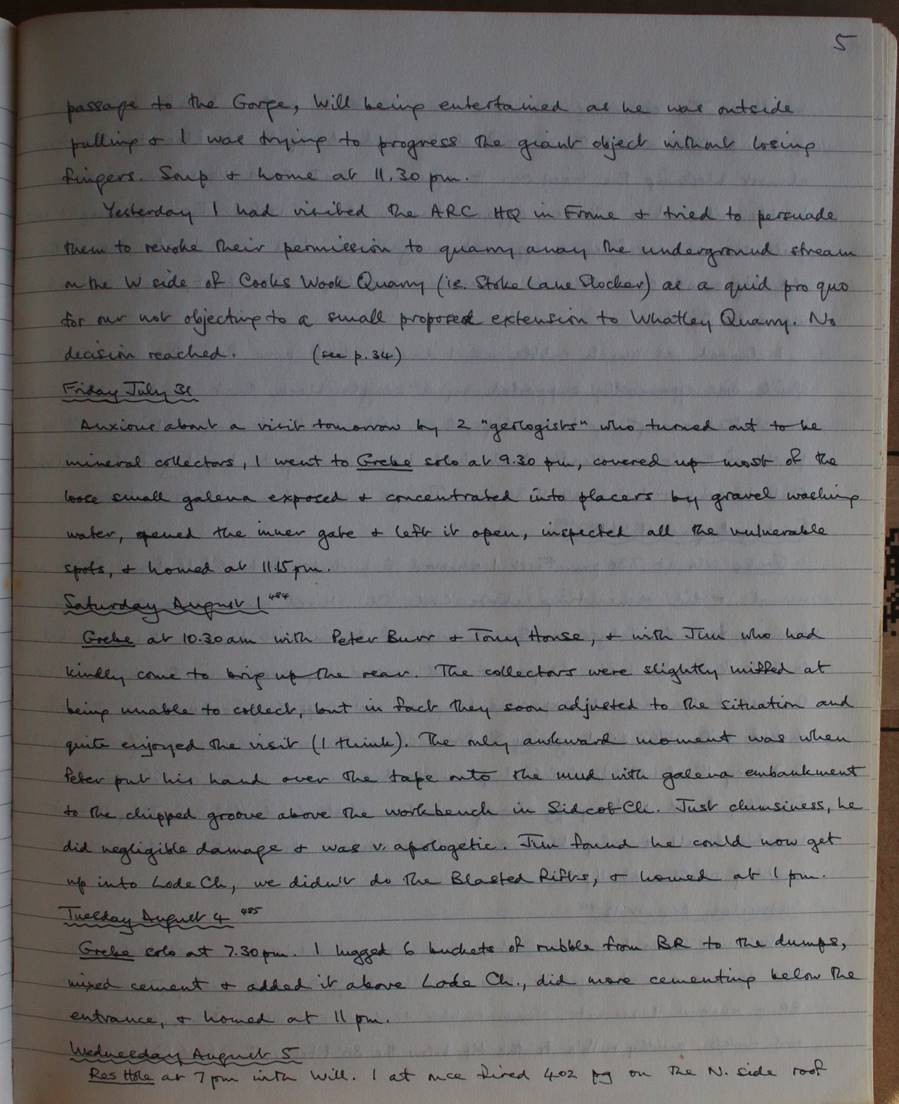 5
passage to the Gorge, Will being entertained as he was outside
pulling & I was trying to progress the giant object without losing
fingers. Soup & home at 11.30 pm.
Yesterday I had visited the ARC HQ in Frome & tried to persuade
them to revoke their permission to quarry away the underground stream
on the W side of Cooks Wook Quarry (i.e. Stoke Lane Slocker) as a quid pro quo
for our not objecting to a small proposed extension to Whatley Quarry. No
decision reached. (see p.34)
Friday July 31
Anxious about a visit tomorrow by 2 "geologists" who turned out to be
mineral collectors, I went to Grebe solo at 9.30 pm, covered up most of the
loose small galena exposed & concentrated into placers by gravel washing
water, opened the inner gate & left it open, inspected all the vulnerable
spots, & homed at 11.15 pm.
Saturday August 1 484
Grebe at 10.30 am with Peter Burr & Tony House, & with Jim who had
kindly come to bring up the rear. The collectors were slightly miffed at
being unable to collect, but in fact they soon adjusted to the situation and
quite enjoyed the visit (I think). The only awkward moment was when
Peter put his hand over the tape onto the mud with galena embankment
to the chipped groove above the workbench in Sidcot Ch. Just clumsiness, he
did negligible damage & was v. apologetic. Jim found he could now get
up into Lode Ch, we didn't do the Blasted Rifts, & homed at 1 pm.
Tuesday August 4 485
Grebe solo at 7.30 pm. I lugged 6 buckets of rubble from BR to the dumps,
mixed cement & added it above Lode Ch., did more cementing below the
entrance, & homed at 11 pm.
Wednesday August 5
Res Hole at 7 pm with Will. I at once fired 402 pg on the N. side roof